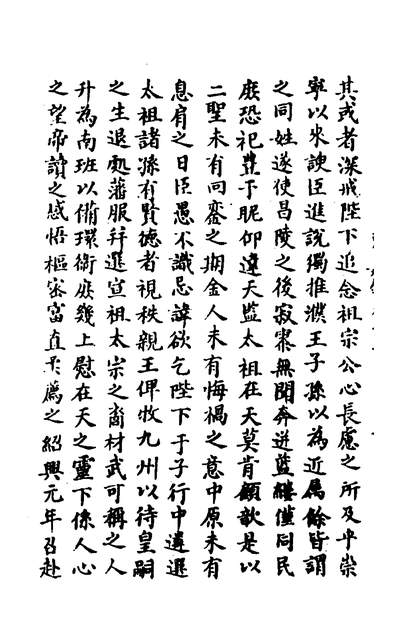 其或者深戒陛下追念祖宗公心長慮之所及乎崇
寧以來諛臣進說獨推濮王子孫以為近屬餘皆謂
之同姓遂使昌陵之後寂寥無聞奔迸藍縷僅同民
庶恐祀豊于昵仰違天監太祖在天莫肯顧歆是以
二聖未有回鑾之期金人未有悔禍之意中原未有
息肩之日臣愚不識忌諱欲乞陛下于子行中遴選
太祖諸孫有賢德者視秩親王俾牧九州以待皇嗣
之生退處藩服幷選宣祖太宗之裔材武可稱之人
升為南班以備環衛庶幾上慰在天之靈下係人心
之望帝讀之感悟樞密富直柔薦之紹興元年召赴